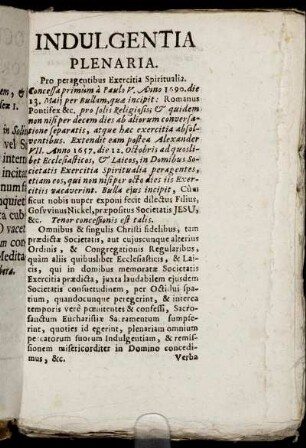 INDULGENTIA
PLENARIA.
Pro peragentibus Exercitia Spiritualia.
Concessa primùm à Paulo V. Anno 1690. die
13. Maij per Bullam, quæ incipit: Romanus
Pontifex &c. pro solis Religiosis; & quidem
non nisi per decem dies ab aliorum conversa-
tione separatis, atque hac exercitia absol-
ventibus. Extendit eam postea Alexander
VII. Anno 1657. die 12. Octobris ad quosli-
bet Ecclesiasticos, & Laicos, in Domibus So-
cietatis Exercitia Spiritualia peragentes,
etiam eos, qui non nisi per octo dies iis Exer-
citiis vacaverint. Bulla ejus incipit, Cùm
sicut nobis nuper exponi fecit dilectus Filius,
Gosvvinus Nickel, præpositus Societatis JESU,
&c. Tenor concessionis est talis.
Omnibus & singulis Christi fidelibus, tam
prædictæ Societatis, aut cujuscunque alterius
Ordinis, & Congregationis Regularibus,
quàm aliis quibuslibet Ecclesiasticis, & Lai-
cis, qui in domibus memoratæ Societatis
Exercitia prædicta, juxta laudabilem ejusdem
Societatis consuetudinem, per Octidui spa-
tium, quandocunque peregerint, & interea
temporis verè pœnitentes & confessi, Sacro-
sanctum Eucharistiæ Sacramentum sumpse-
rint, quoties id egerint, plenariam omnium
peccatorum suorum Indulgentiam, & remis-
sionem misericorditer in Domino concedi-
mus, &c. Verba